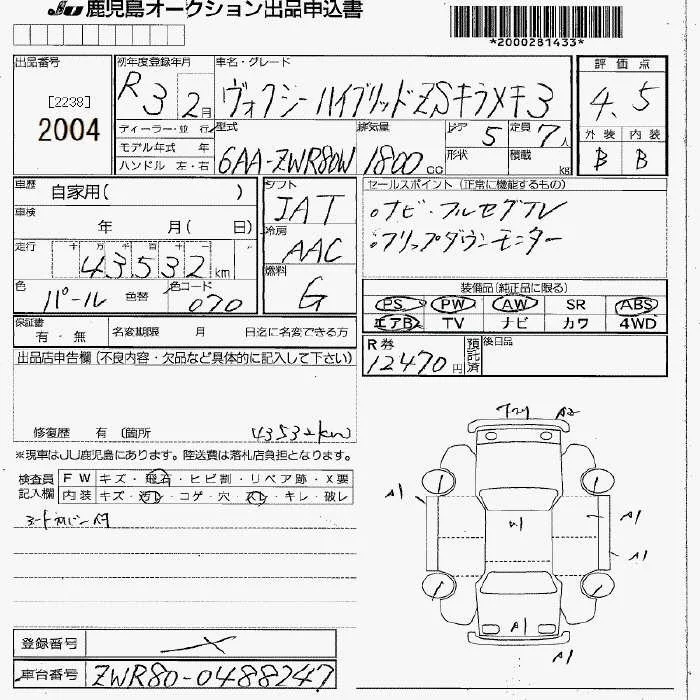 JU 鹿児島オークション出品申込書
*2000281433*
出品番号
[2238]
2004
初年度登録年月
R3 2月
ディーラー・並行
モデル年式 年
ハンドル 左・右
車名・グレード
ヴォクシーハイブリッドZSキラメキ3
型式
6AA-ZWR80W
排気量
1800 cc
ドア 5
定員 7人
形状
積載 kg
評価点
4.5
外装 内装
B B
車歴
自家用( )
車検
年 月( 日)
走行
十 万 千 百 十 一
43532 km
色
パール
色替
色コード
070
シフト
IAT
冷房
AAC
燃料
G
セールスポイント (正常に機能するもの)
ナビ・フルセグTV
フリップダウンモニター
装備品(純正品に限る)
PS PW AW SR ABS
エアB TV ナビ カワ 4WD
保証書
有・無
名変期限 月 日迄に名変できる方
R券
12470円
預託済
後日品
出品店申告欄(不良内容・欠品など具体的に記入して下さい)
修復歴 有 〔箇所
43532km)
※現車はJU鹿児島にあります。陸送費は落札店負担となります。
検査員記入欄
FW キズ・飛石・ヒビ割・リペア跡・X要
内装 キズ・汚レ・コゲ・穴・スレ・キレ・破レ
A2
A1
A1
A1
A1
A1
登録番号
車台番号 ZWR80-0488247